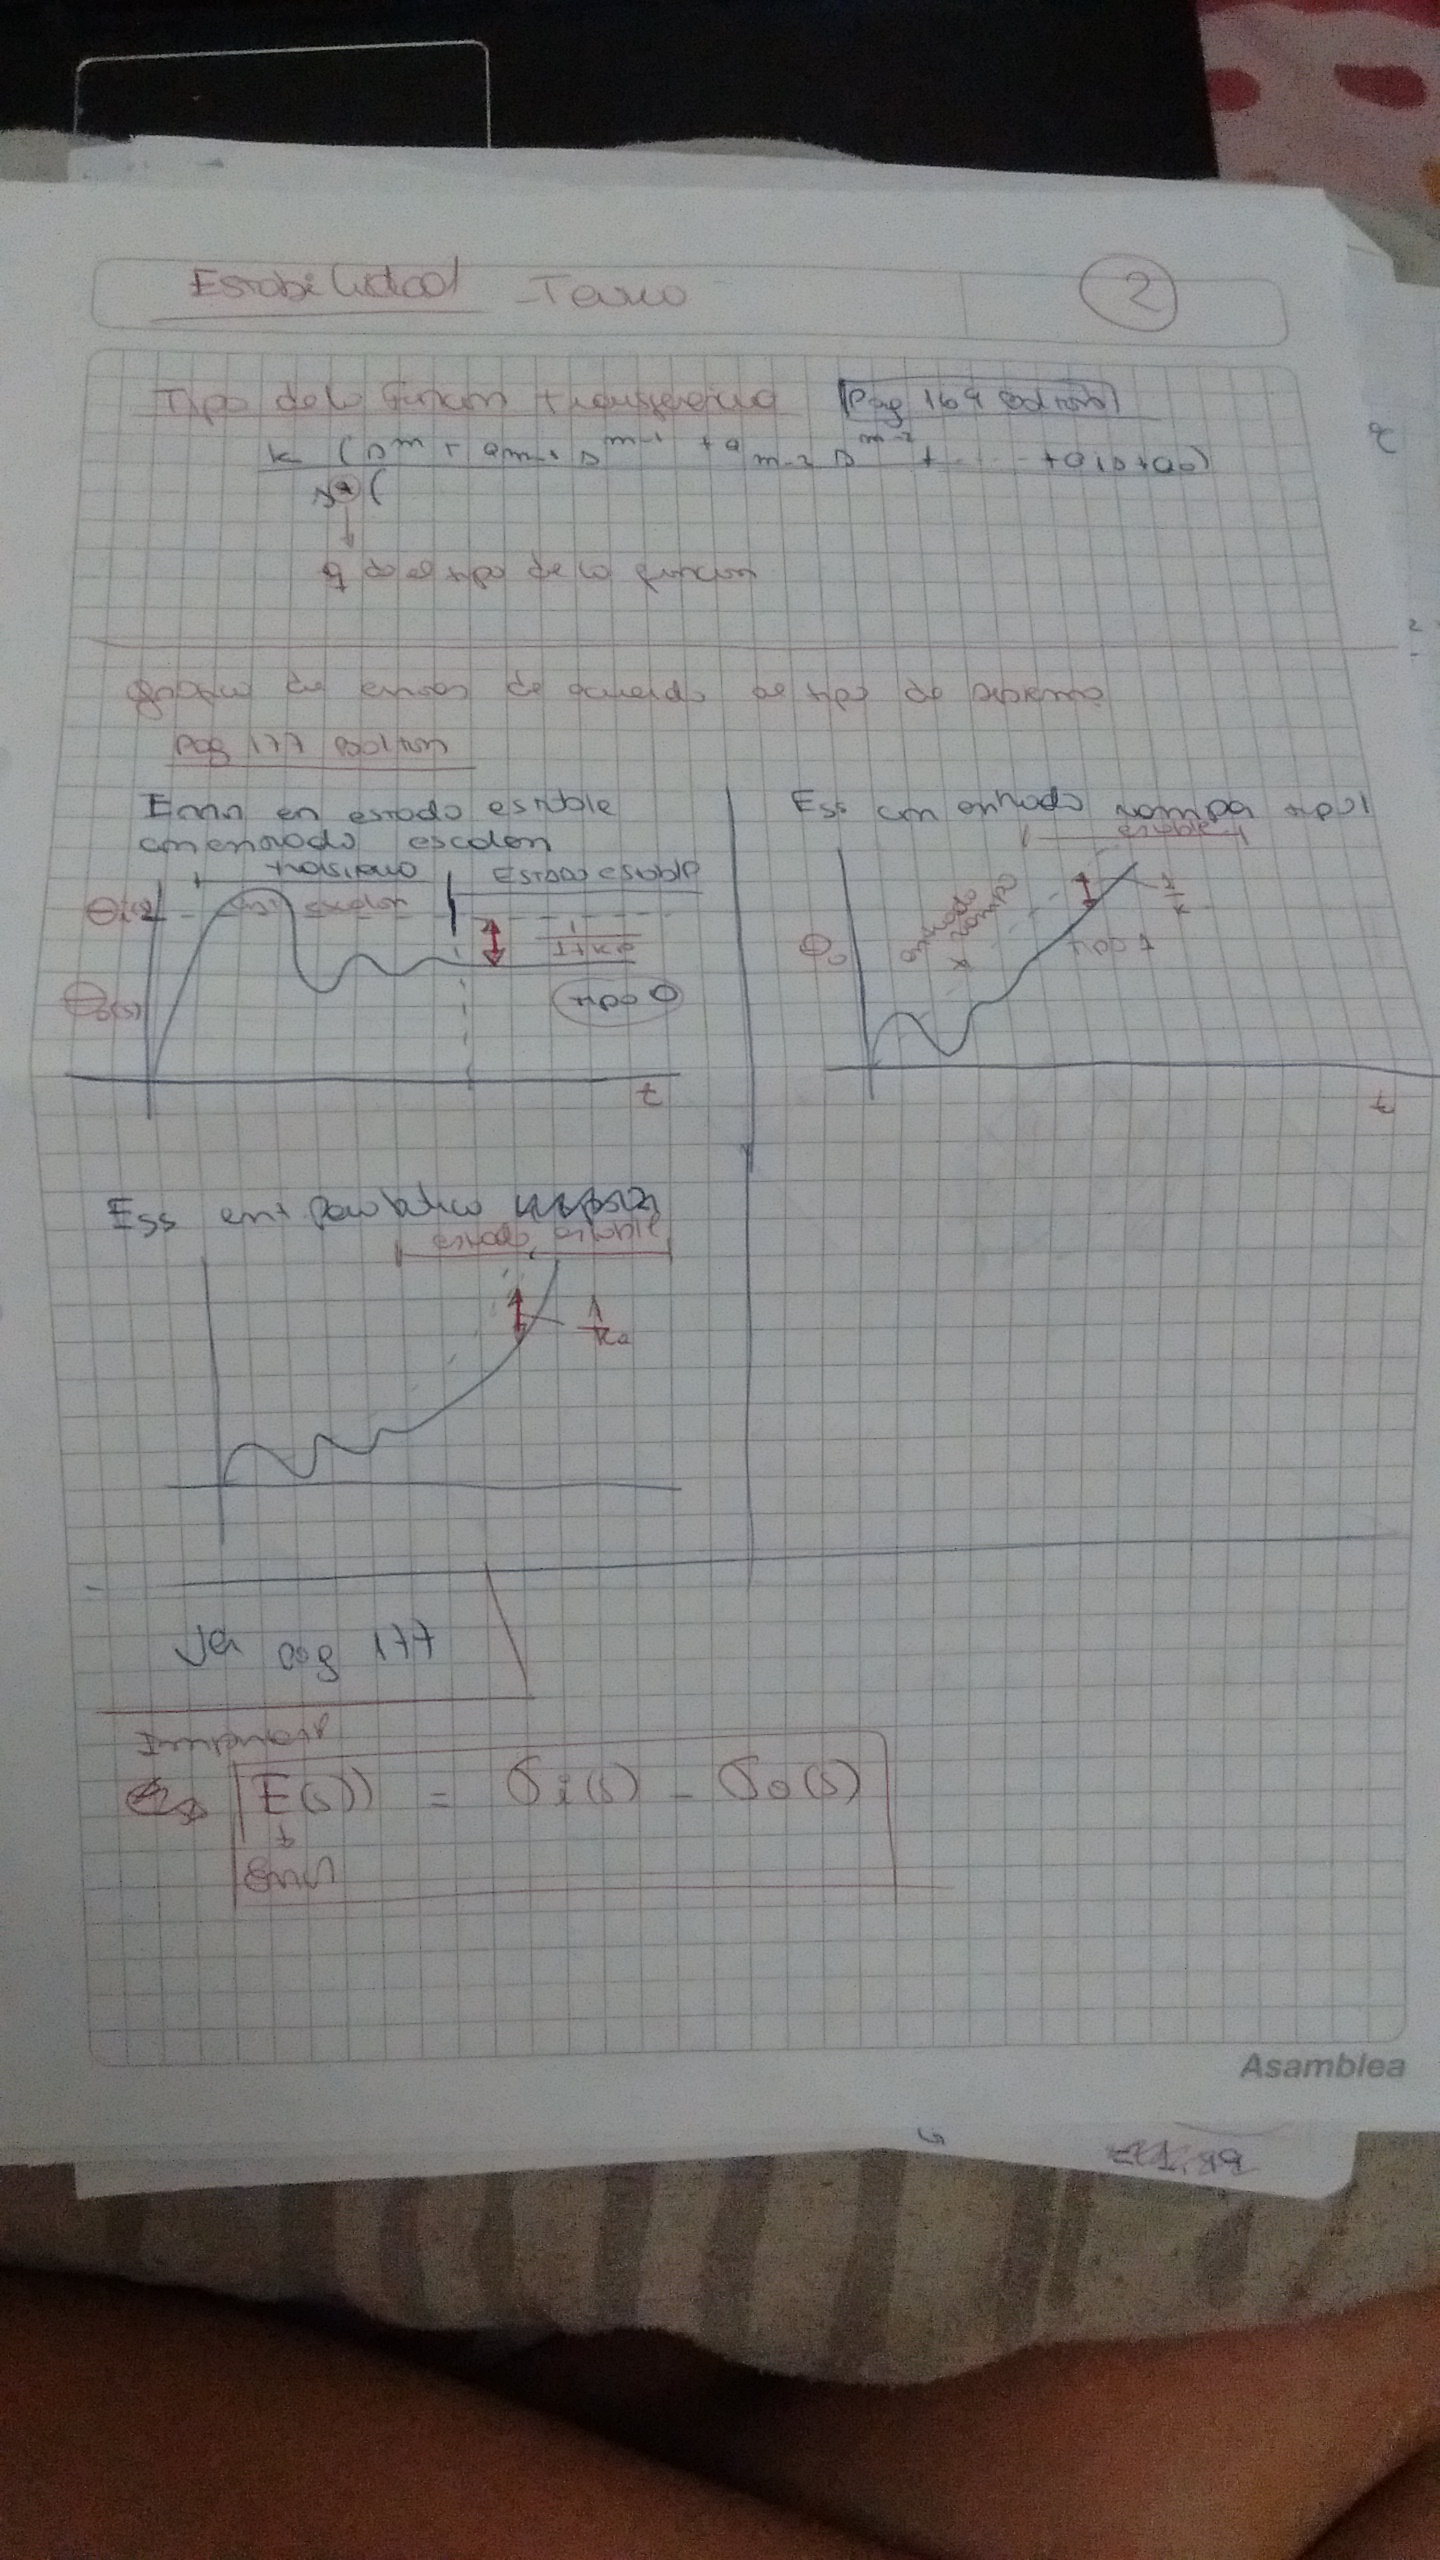 Estabilidad - Tarea
2
Tipo de la función transferencia Pag 169 Bolton
K (s^m + a_{m-1} s^{m-1} + a_{m-2} s^{m-2} + ... + a_1 s + a_0)
s^q (
q es el tipo de la funcion
de errores de acuerdo al tipo de sistema
pag 177 Bolton
Error en estado estable
con entrada escalon
transitorio Estado estable
θi(s) escalon 1/1+Kp
θo(s) tipo 0
t
Ess con entrada rampa tipo 1
estable
entrada rampa
1/K
θo tipo 1
t
Ess ent parabolica
estado estable
1/Ka
Ver pag 177
Important
E(s) = θi(s) - θo(s)
Error
Asamblea